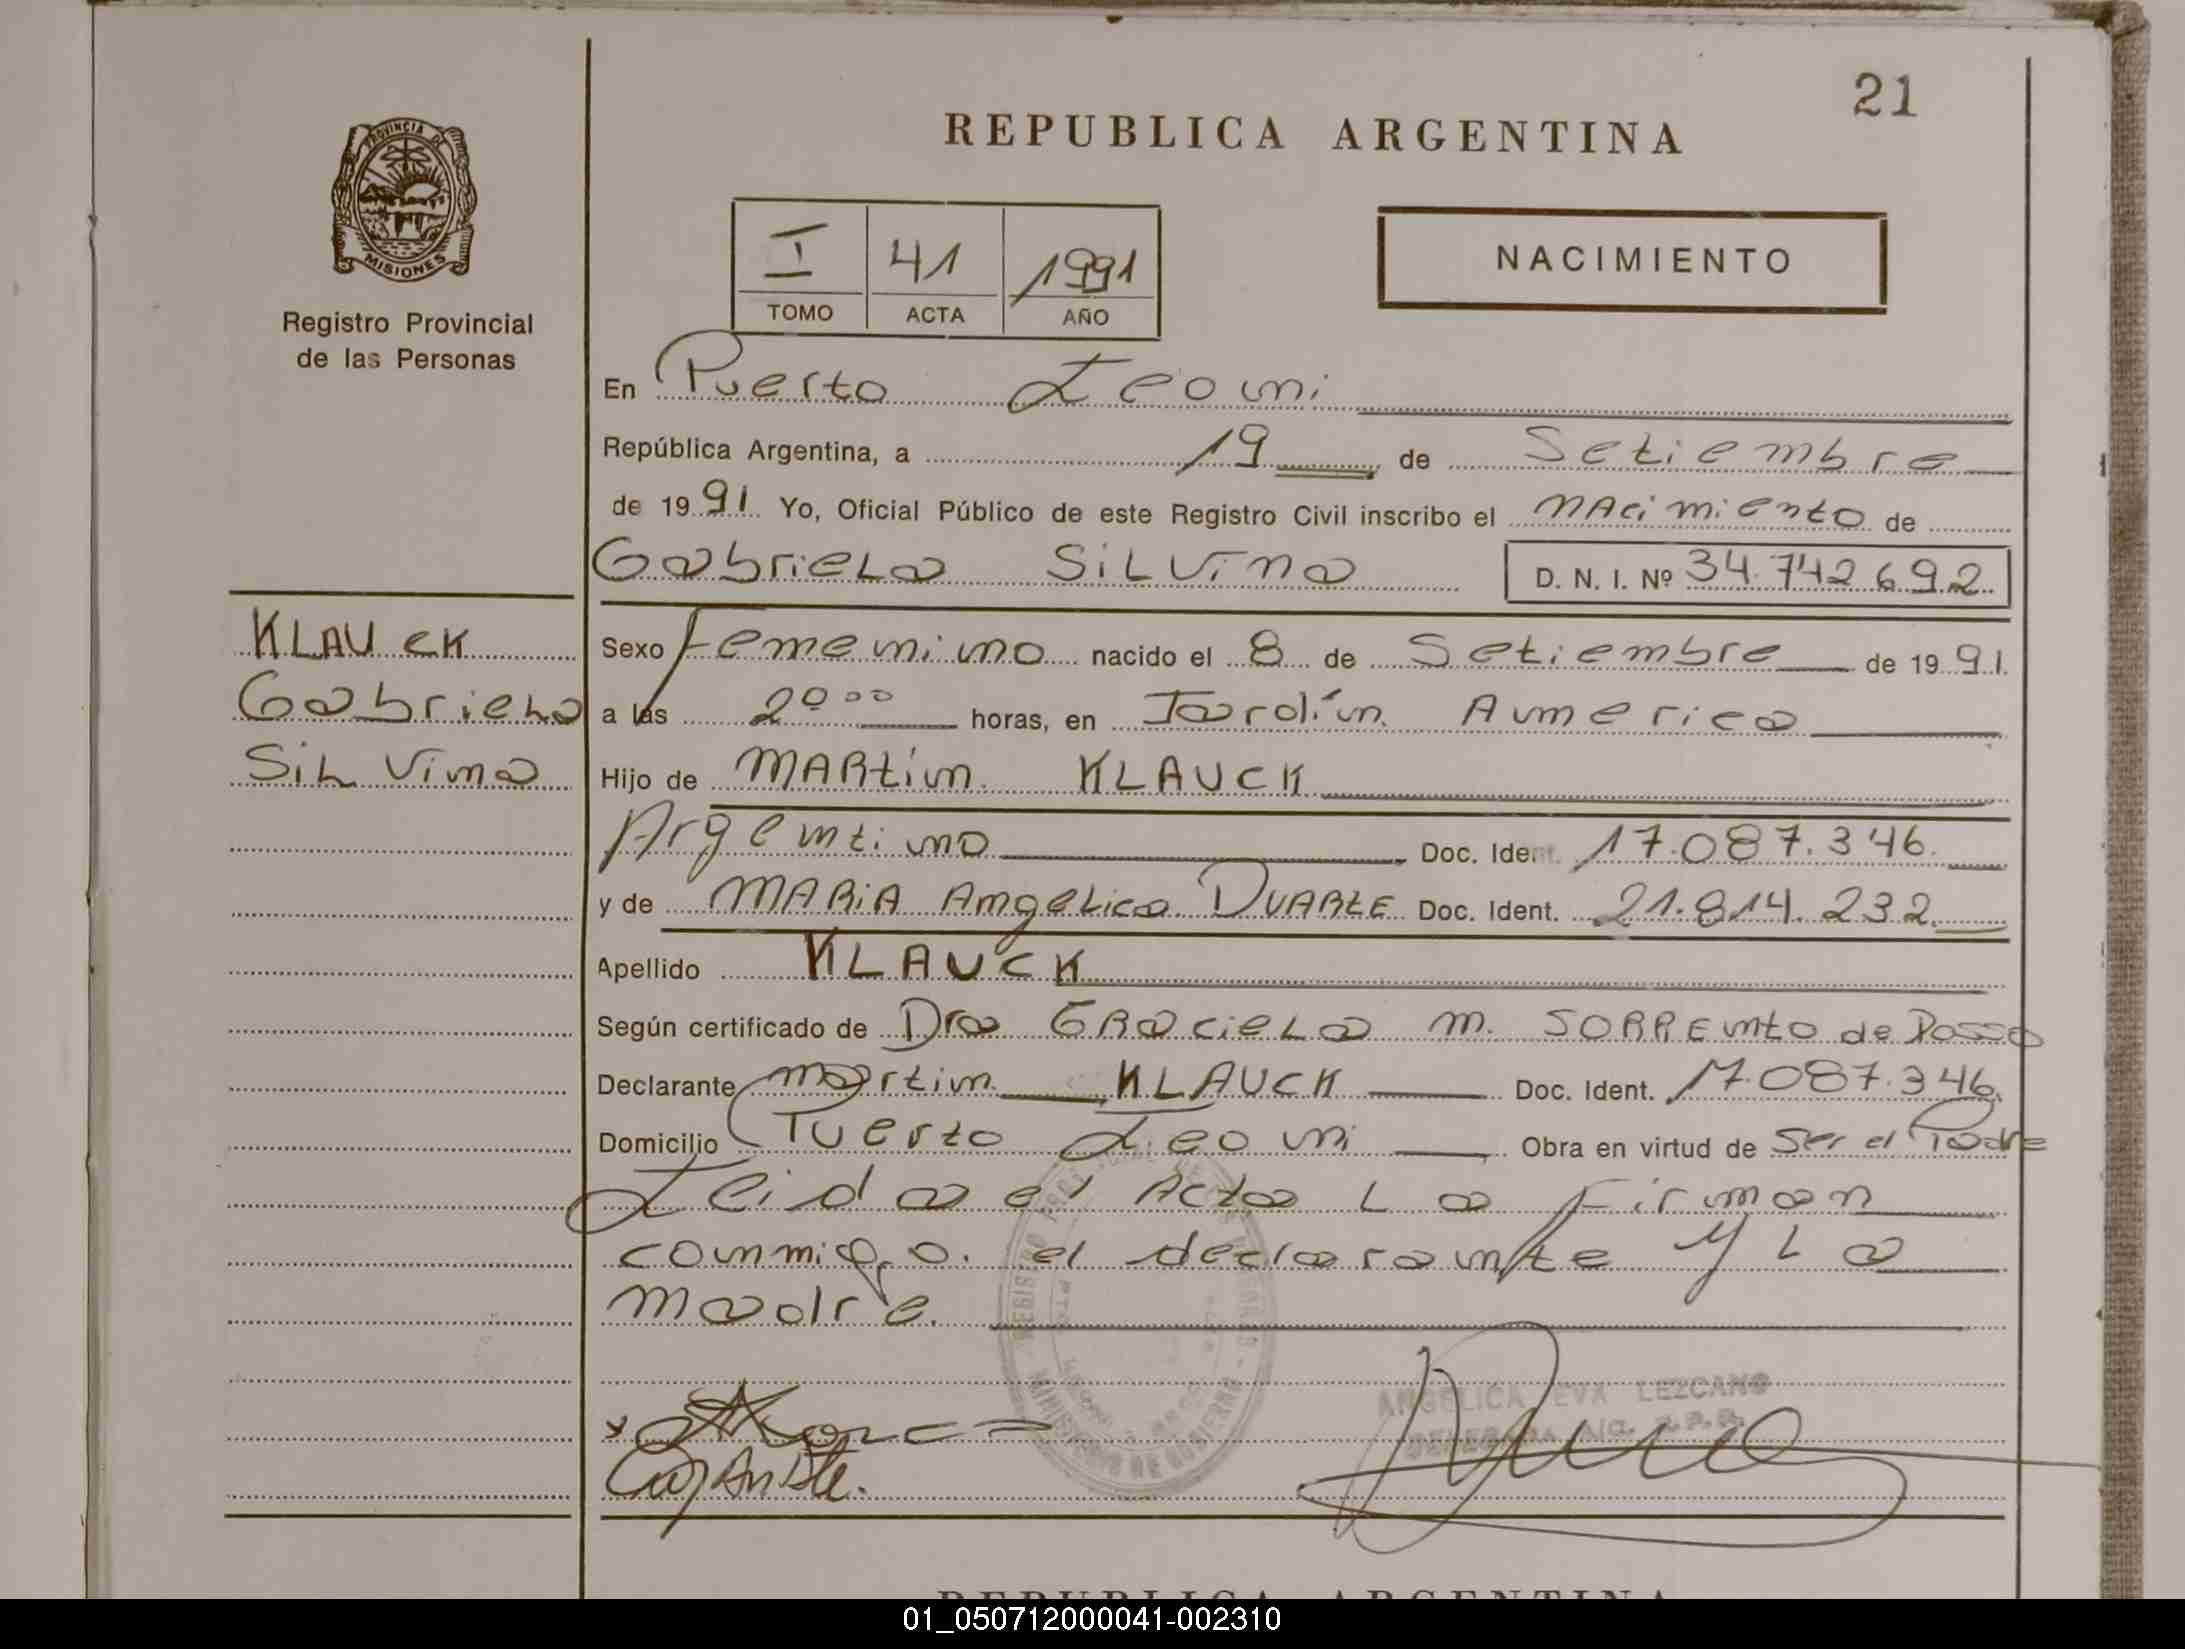 21
REPUBLICA ARGENTINA
PROVINCIA DE
MISIONES
Registro Provincial
de las Personas
I 41 1991
TOMO ACTA AÑO
NACIMIENTO
En Puerto Leoni
República Argentina, a 19 de Setiembre
de 1991. Yo, Oficial Público de este Registro Civil inscribo el nacimiento de
Gabriela Silvina D. N. I. Nº 34.742.692.
KLAUCK
Gabriela
Silvina
Sexo femenino nacido el 8 de Setiembre de 1991.
a las 20 00 horas, en Jardín America
Hijo de Martin KLAUCK
Argentino Doc. Ident. 17.087.346.
y de Maria Angelica Duarte Doc. Ident. 21.814.232.
Apellido KLAUCK
Según certificado de Dra Graciela M. Sorrento de Dosso
Declarante Martin KLAUCK Doc. Ident. 17.087.346.
Domicilio Puerto Leoni Obra en virtud de Ser el Padre
Leida el Acta La Firman
conmigo. el declarante y La
Madre.
ANGELICA EVA LEZCANO
REPUBLICA ARGENTINA
01_050712000041-002310